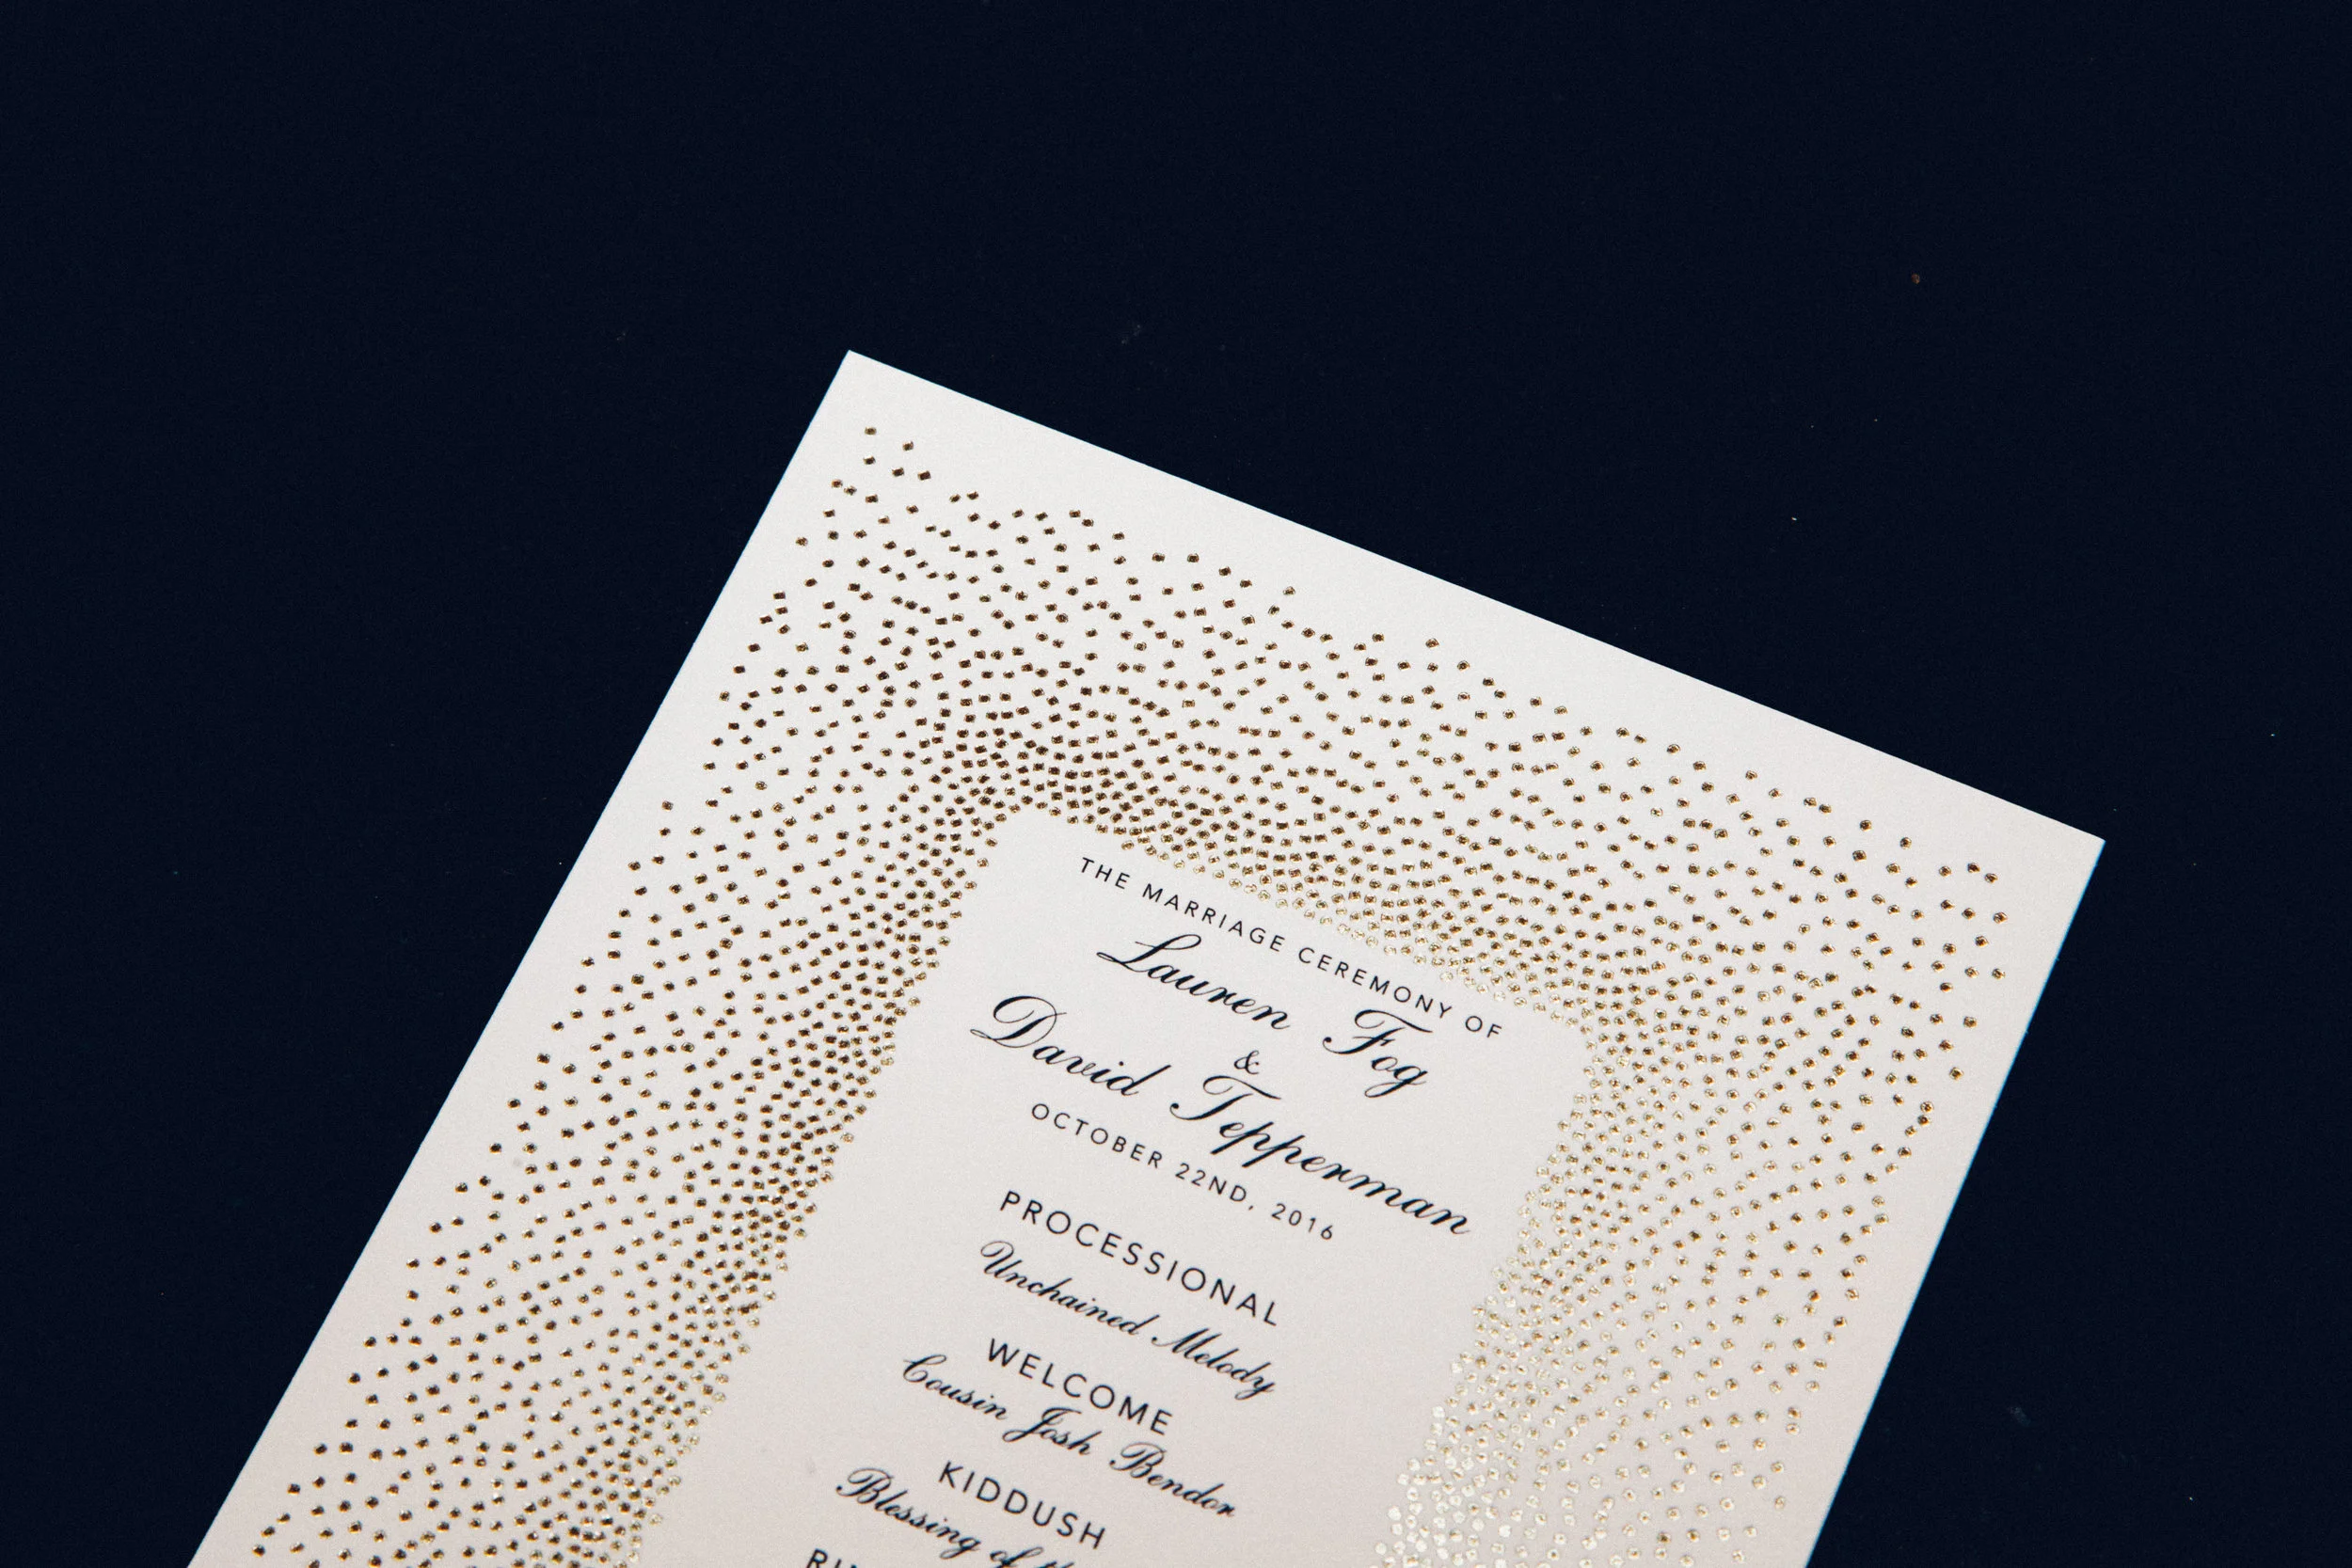 THE MARRIAGE CEREMONY OF
Lauren Fog
&
David Tepperman
OCTOBER 22ND, 2016
PROCESSIONAL
Unchained Melody
WELCOME
Cousin Josh Bendor
KIDDUSH
Blessing of